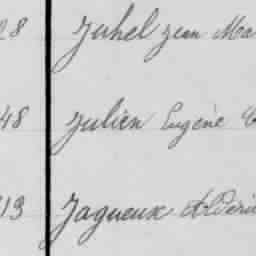 28 Juhel Jean Ma
48 Julien Eugène
13 Jagueux